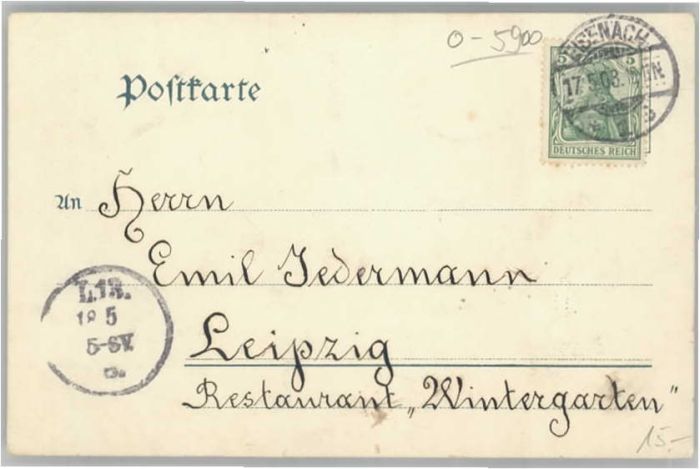 O-5900
EISENACH
Postkarte
5 5
17.5.03.
DEUTSCHES REICH
An Herrn
Emil Jedermann
L.13.
18 5
5-8V.
Leipzig
Restaurant „Wintergarten"
15.-